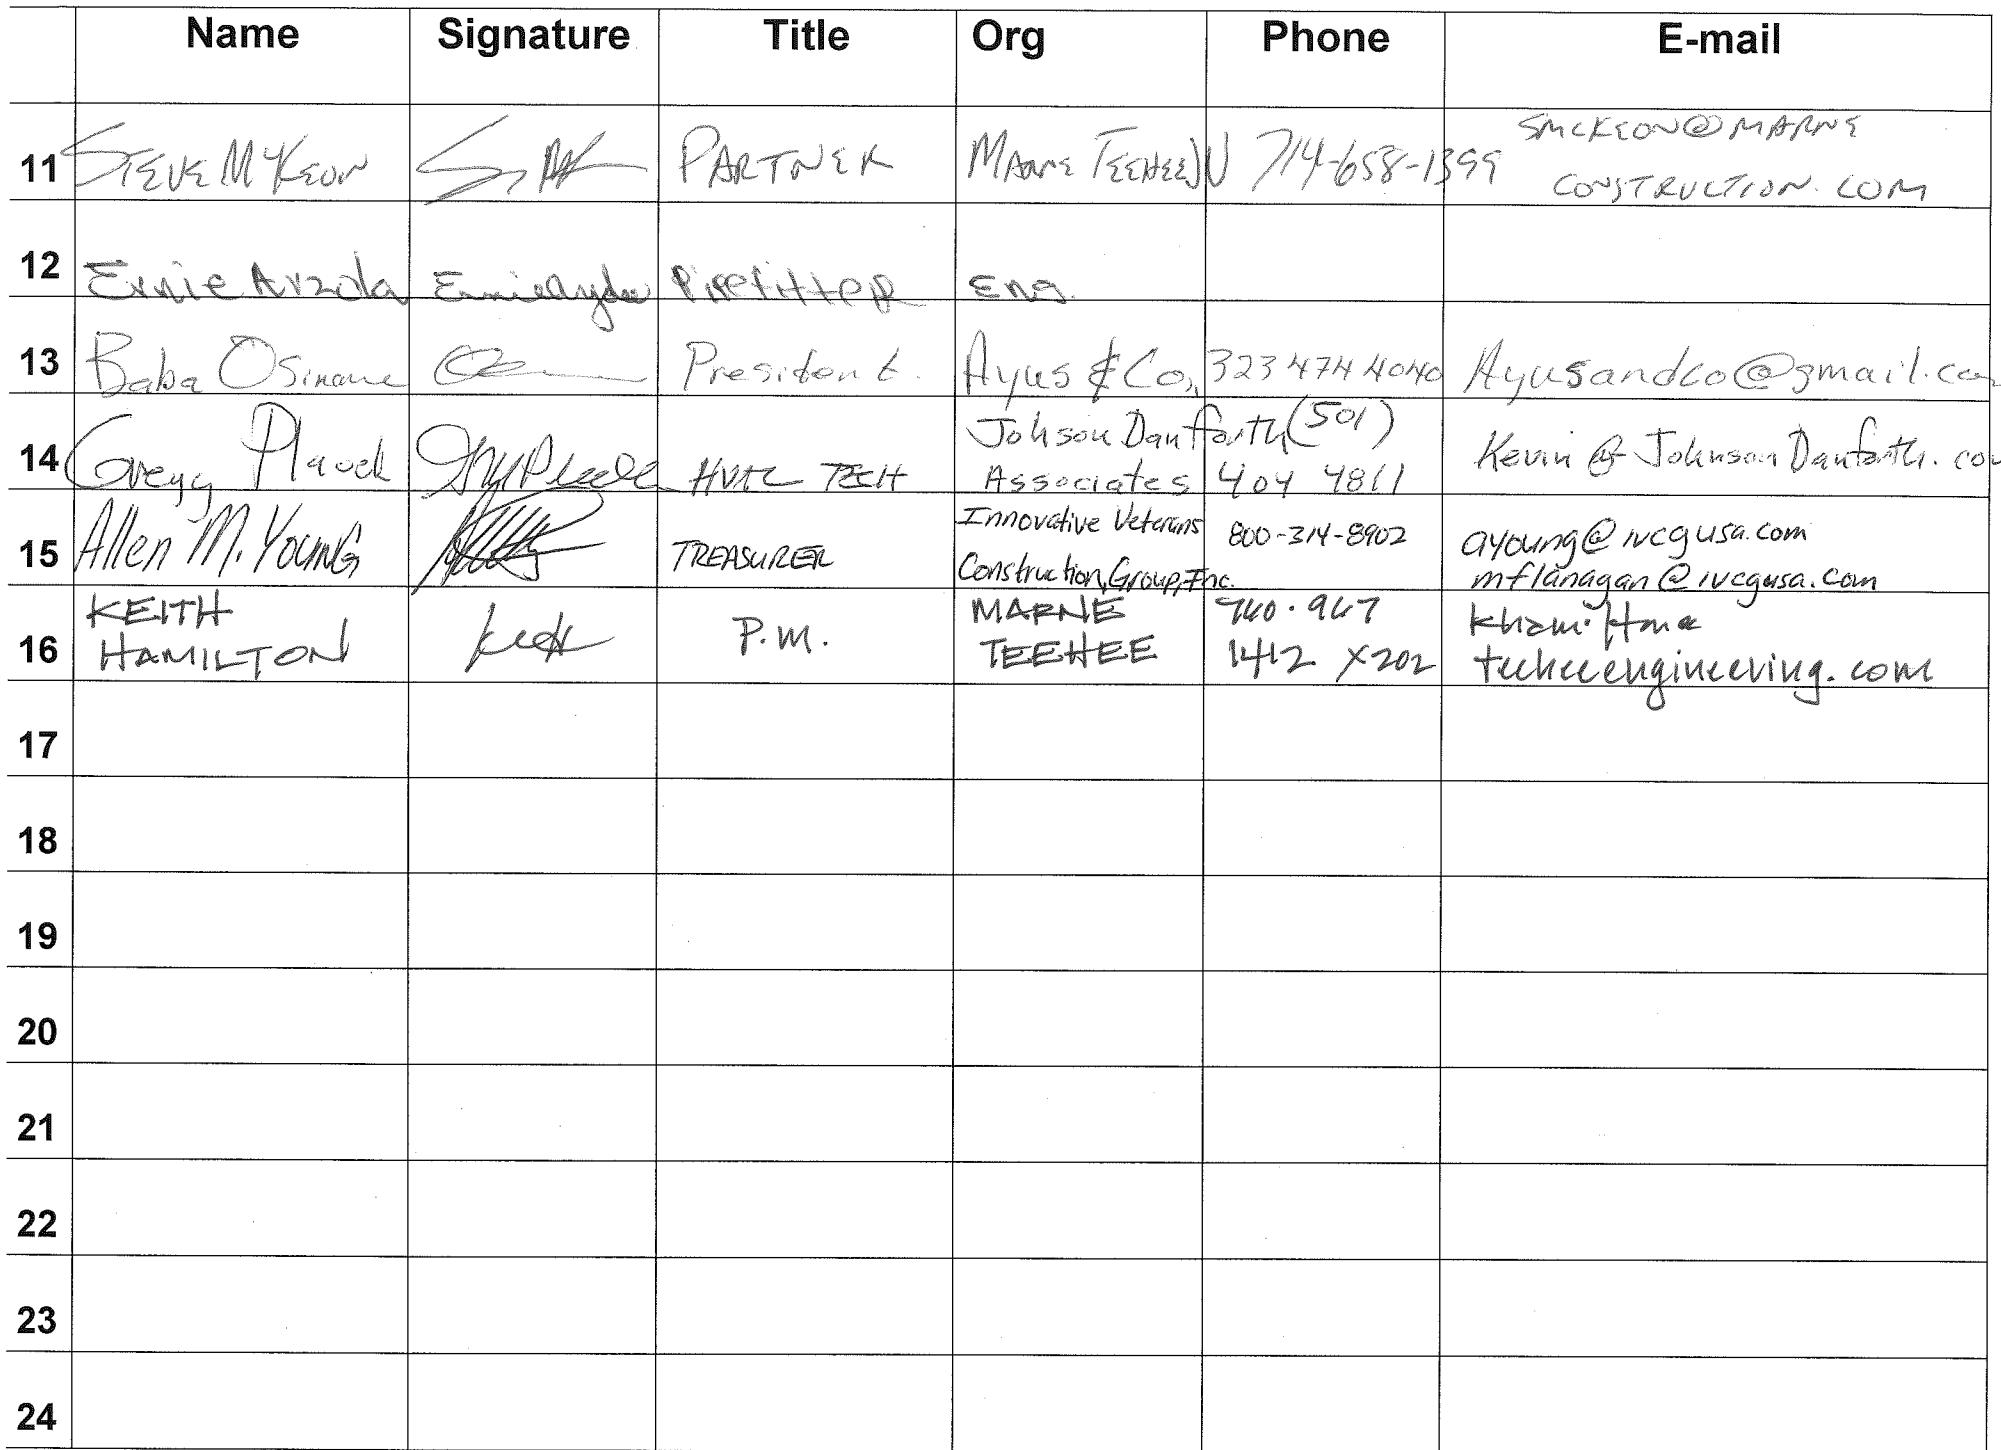 Name Signature Title Org Phone E-mail
11 STEVE McKEON PARTNER MARNE TEEHEE JV 714-658-1399 SMCKEON@MARNE
CONSTRUCTION.COM
12 Ernie Arzola Pipefitter Eng.
13 Baba President. Ayus & Co., 323 474 4040 Ayusandco@gmail.com
14 Gregg HVAC TECH Johson Danforth (501)
Associates 404 4811 Kevin @ JohnsonDanforth.com
15 Allen M. YOUNG TREASURER Innovative Veterans
Construction Group, Inc. 800-314-8902 ayoung@ivcgusa.com
mflanagan@ivcgusa.com
16 KEITH
HAMILTON P.M. MARNE
TEEHEE 760.967
1412 X202 khamilton@
teeheeengineering.com
17
18
19
20
21
22
23
24